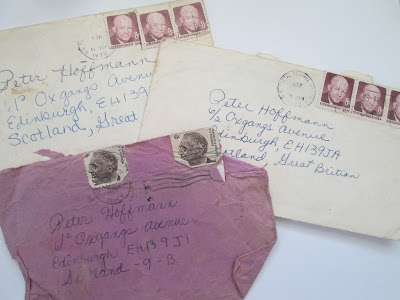 Peter Hoffmann
Oxgangs Avenue
Edinburgh, EH139JA
Scotland, Great
Peter Hoffmann
6/2 Oxgangs Avenue
Edinburgh, EH139JA
Scotland, Great Britian
Peter Hoffmann
Oxgangs avenue
Edinburgh EH139J1
-G-B.